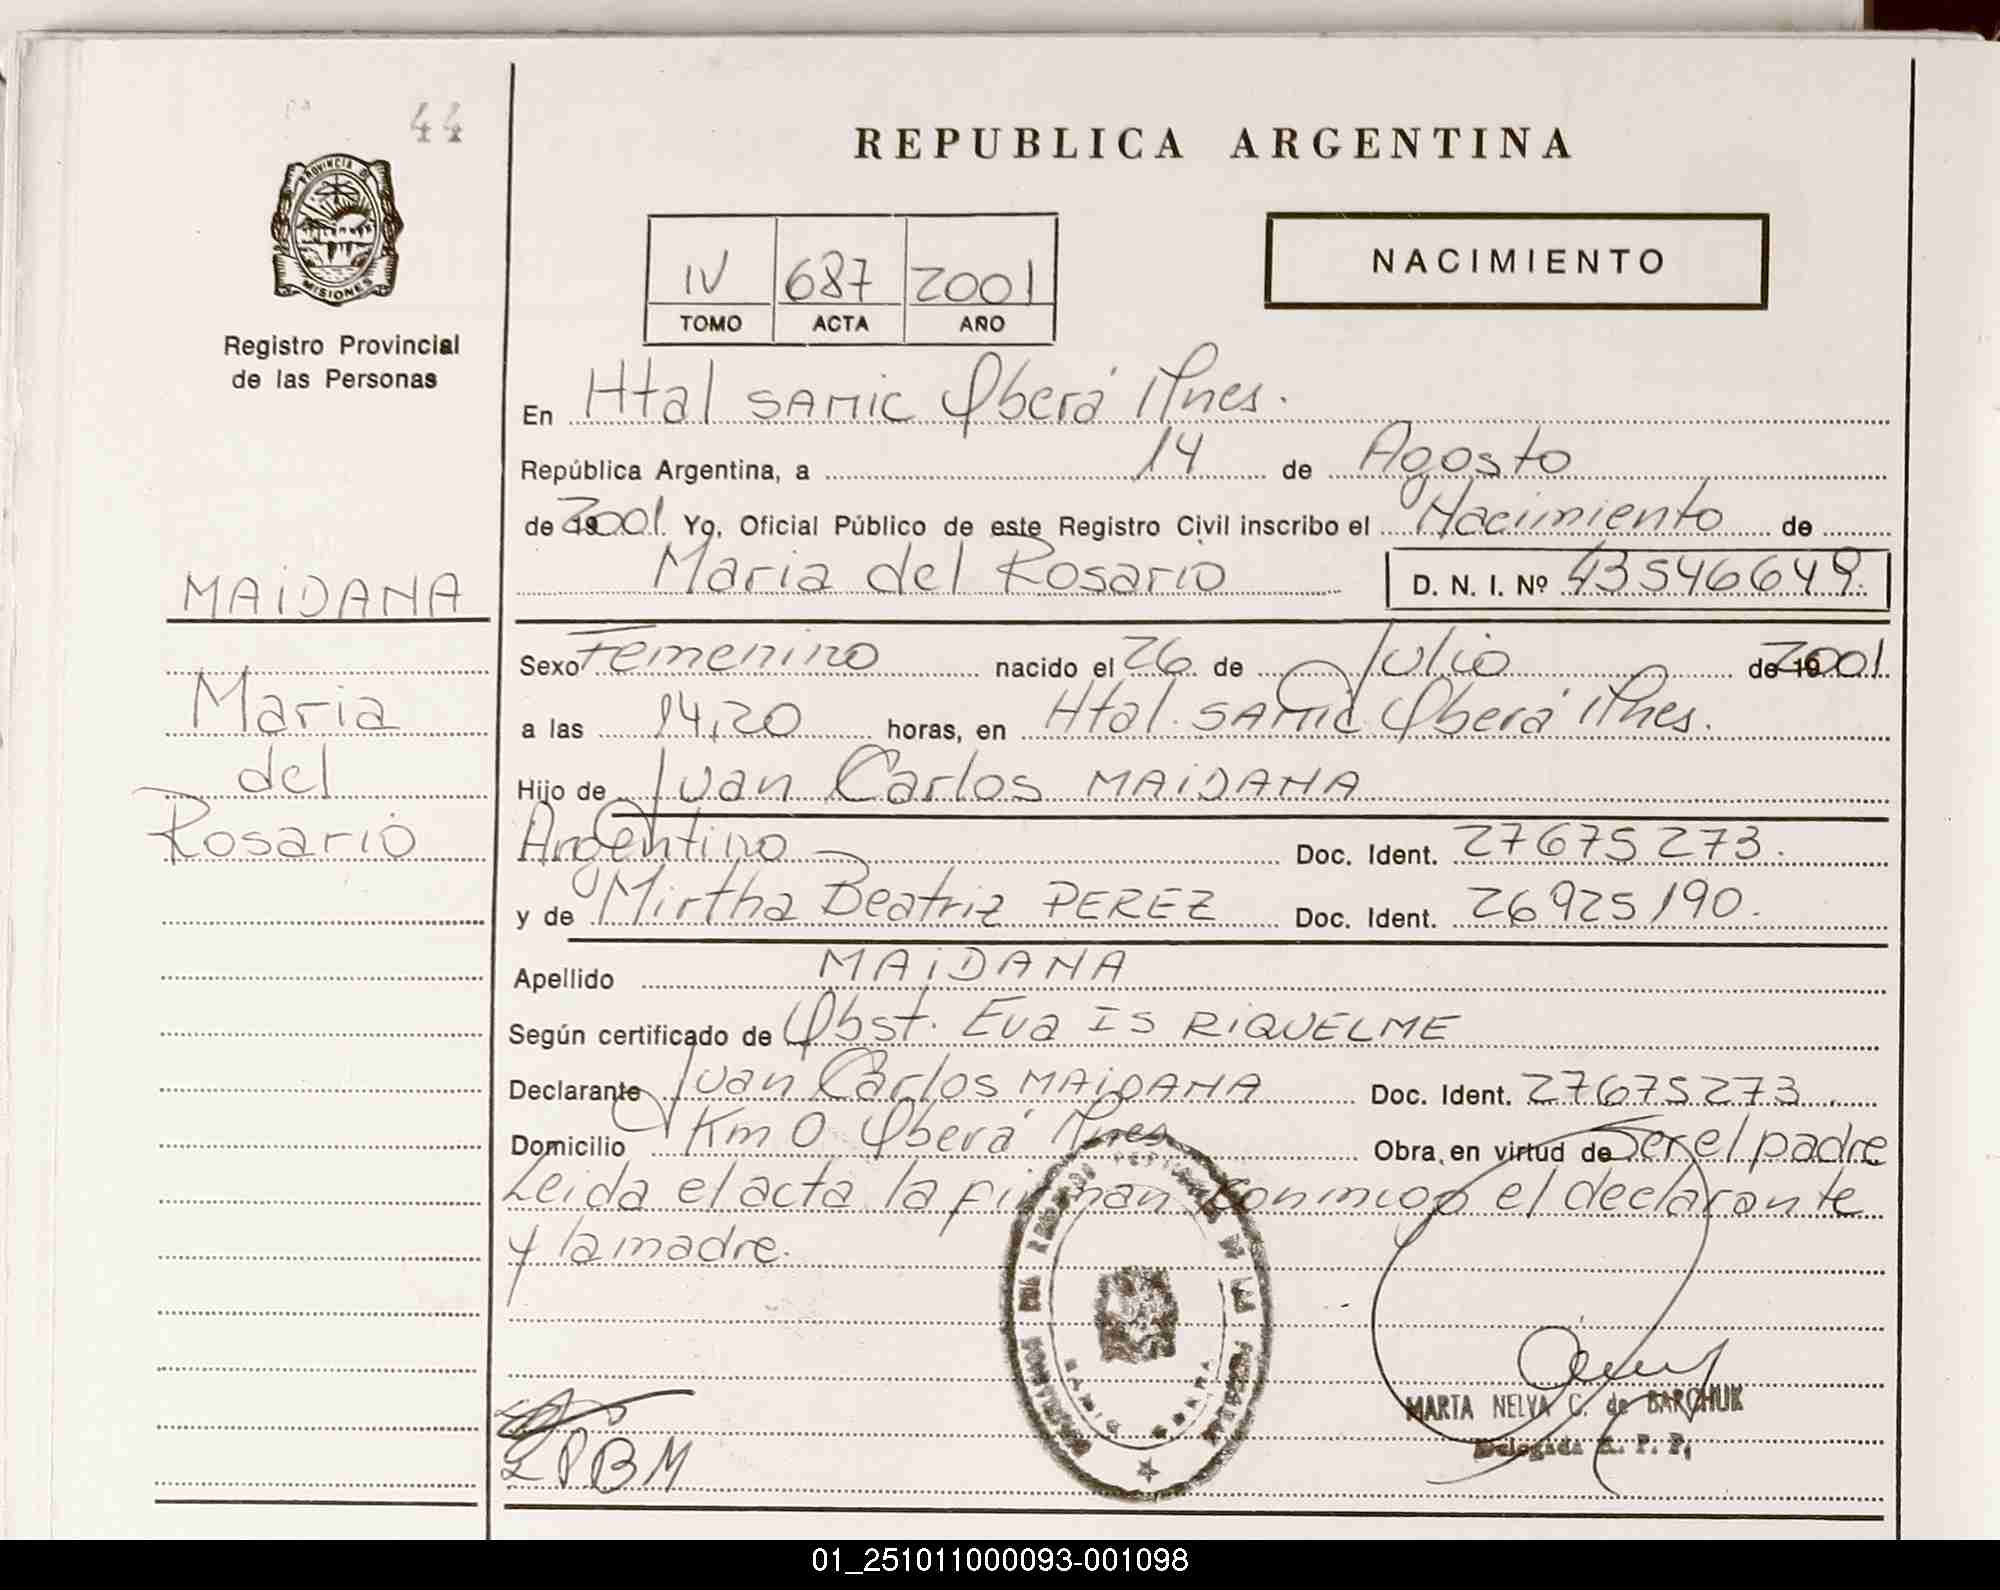 44
PROVINCIA DE
MISIONES
Registro Provincial
de las Personas
MAIDANA
Maria
del
Rosario
REPUBLICA ARGENTINA
IV 687 2001
TOMO ACTA AÑO
NACIMIENTO
En Htal SAMIC Oberá Mnes.
República Argentina, a 14 de Agosto
de 2001. Yo, Oficial Público de este Registro Civil inscribo el Nacimiento de
Maria del Rosario D. N. I. Nº 43546649.
Sexo Femenino nacido el 26 de Julio de 2001.
a las 14,20 horas, en Htal. SAMIC Oberá Mnes.
Hijo de Juan Carlos MAIDANA
Argentino Doc. Ident. 27675273.
y de Mirtha Beatriz PEREZ Doc. Ident. 26925190.
Apellido MAIDANA
Según certificado de Obst. Eva IS RIQUELME
Declarante Juan Carlos MAIDANA Doc. Ident. 27675273.
Domicilio Km 0 Oberá Mnes Obra, en virtud de Ser el padre
Leida el acta la firman conmigo el declarante
y la madre.
PBM
MARTA NELVA C. de BARCHUK
Delegada R. P. P.
01_251011000093-001098